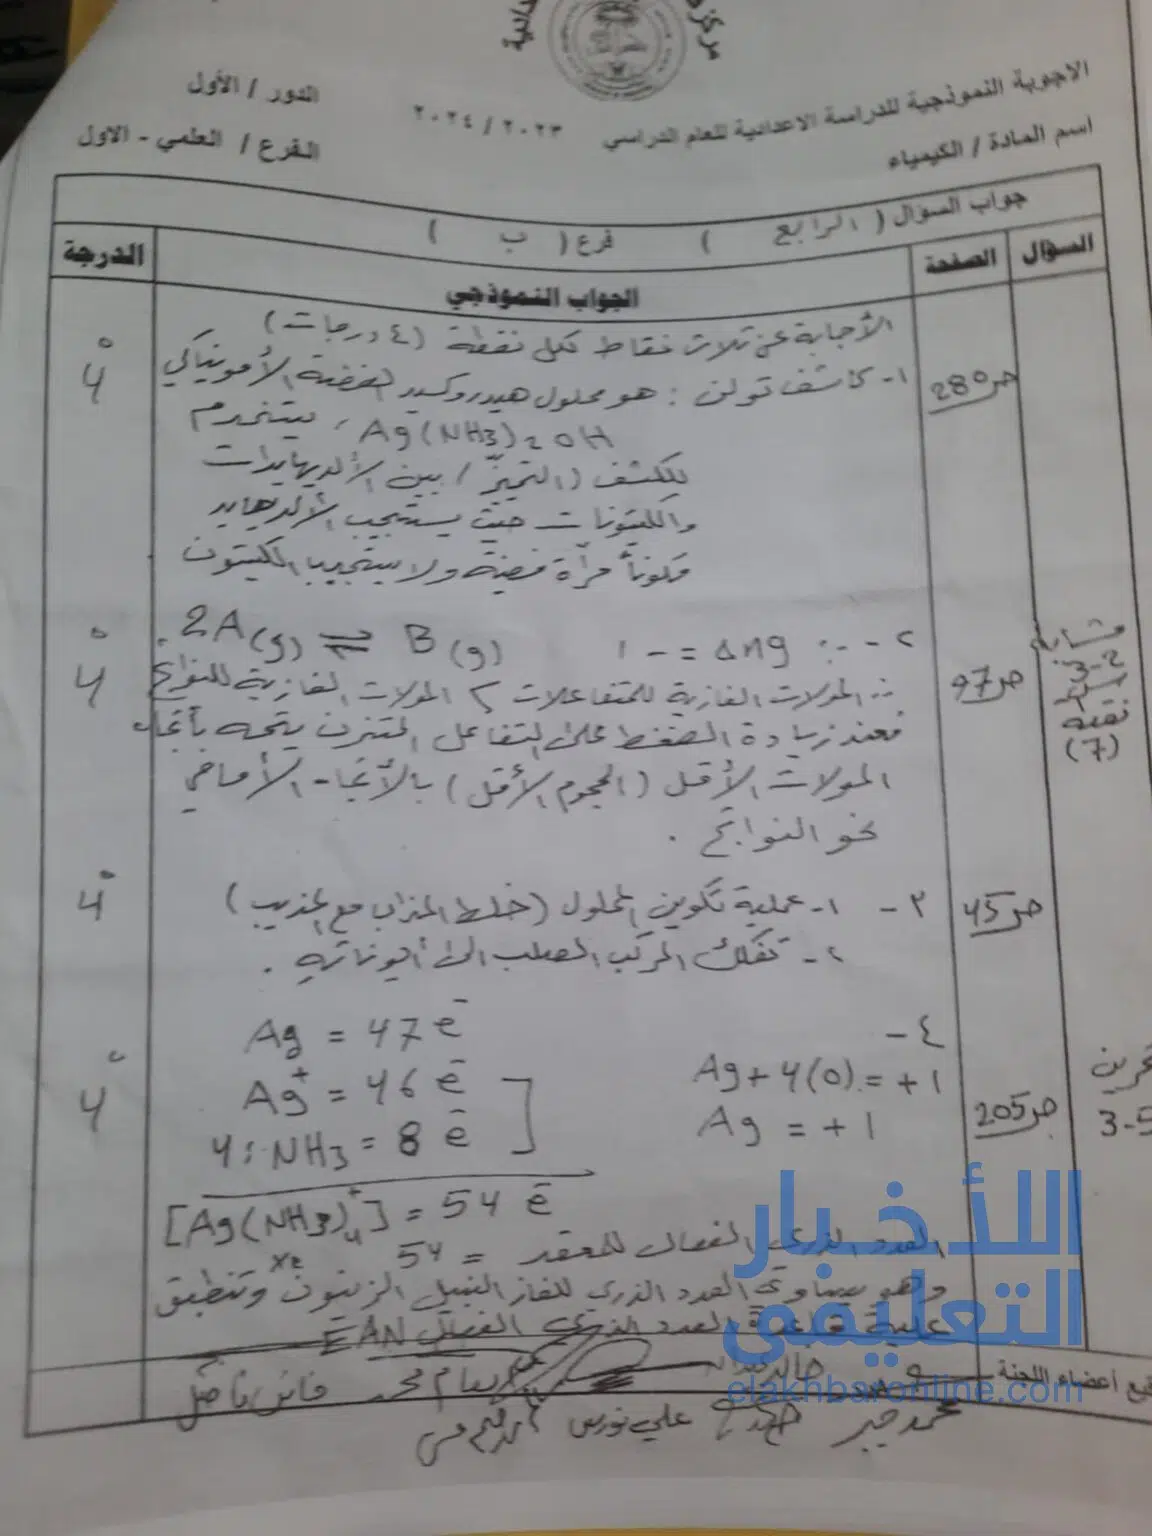 مركز
الاجوبة النموذجية للدراسة الاعدادية للعام الدراسي ٢٠٢٣ / ٢٠٢٤
الدور / الأول
اسم المادة / الكيمياء
الفرع / العلمي - الاول
جواب السؤال ( الرابع ) فرع ( ب )
السؤال الصفحة الجواب النموذجي الدرجة
الأجابة عن ثلاث نقاط لكل نقطة (٤ درجات)
ص280 ١- كاشف تولن : هو محلول هيدروكسيد الفضة الأمونياكي 4
Ag(NH3)2OH ، يستخدم
للكشف (التميز) بين الألديهايدات
والكيتونات حيث يستجيب الألديهايد
مكوناً مرآة فضية ولا يستجيب الكيتون
٢ - ∵ Δng = -1 2A(g) ⇌ B(g) .
ص97 ∵ المولات الغازية للمتفاعلات > المولات الغازية للنواتج 4
3-2
نقطة
(7)
فعند زيادة الضغط على التفاعل المتزن يتجه بأتجاه
المولات الأقل (الحجوم الأقل) بالأتجاه الأمامي
نحو النواتج .
ص45 ٣ - ١- عملية تكوين المحلول (خلط المذاب مع المذيب) 4
٢- تفكك المركب الصلب الى أيوناته .
٤ -
Ag = 47 e⁻
Ag + 4(0) = +1 Ag⁺ = 46 e⁻
تمرين
3-5
ص205 Ag = +1 4:NH3 = 8 e⁻ 4
[Ag(NH3)4⁺] = 54 e⁻
العدد الذري الفعال للمعقد = 54
وهو يساوي العدد الذري للغاز النبيل الزينون Xe وتنطبق
عليه قاعدة العدد الذري الفعال EAN
أعضاء اللجنة
محمد جبر علي نورس
اللأخبار
التعليمي
elakhbaronline.com